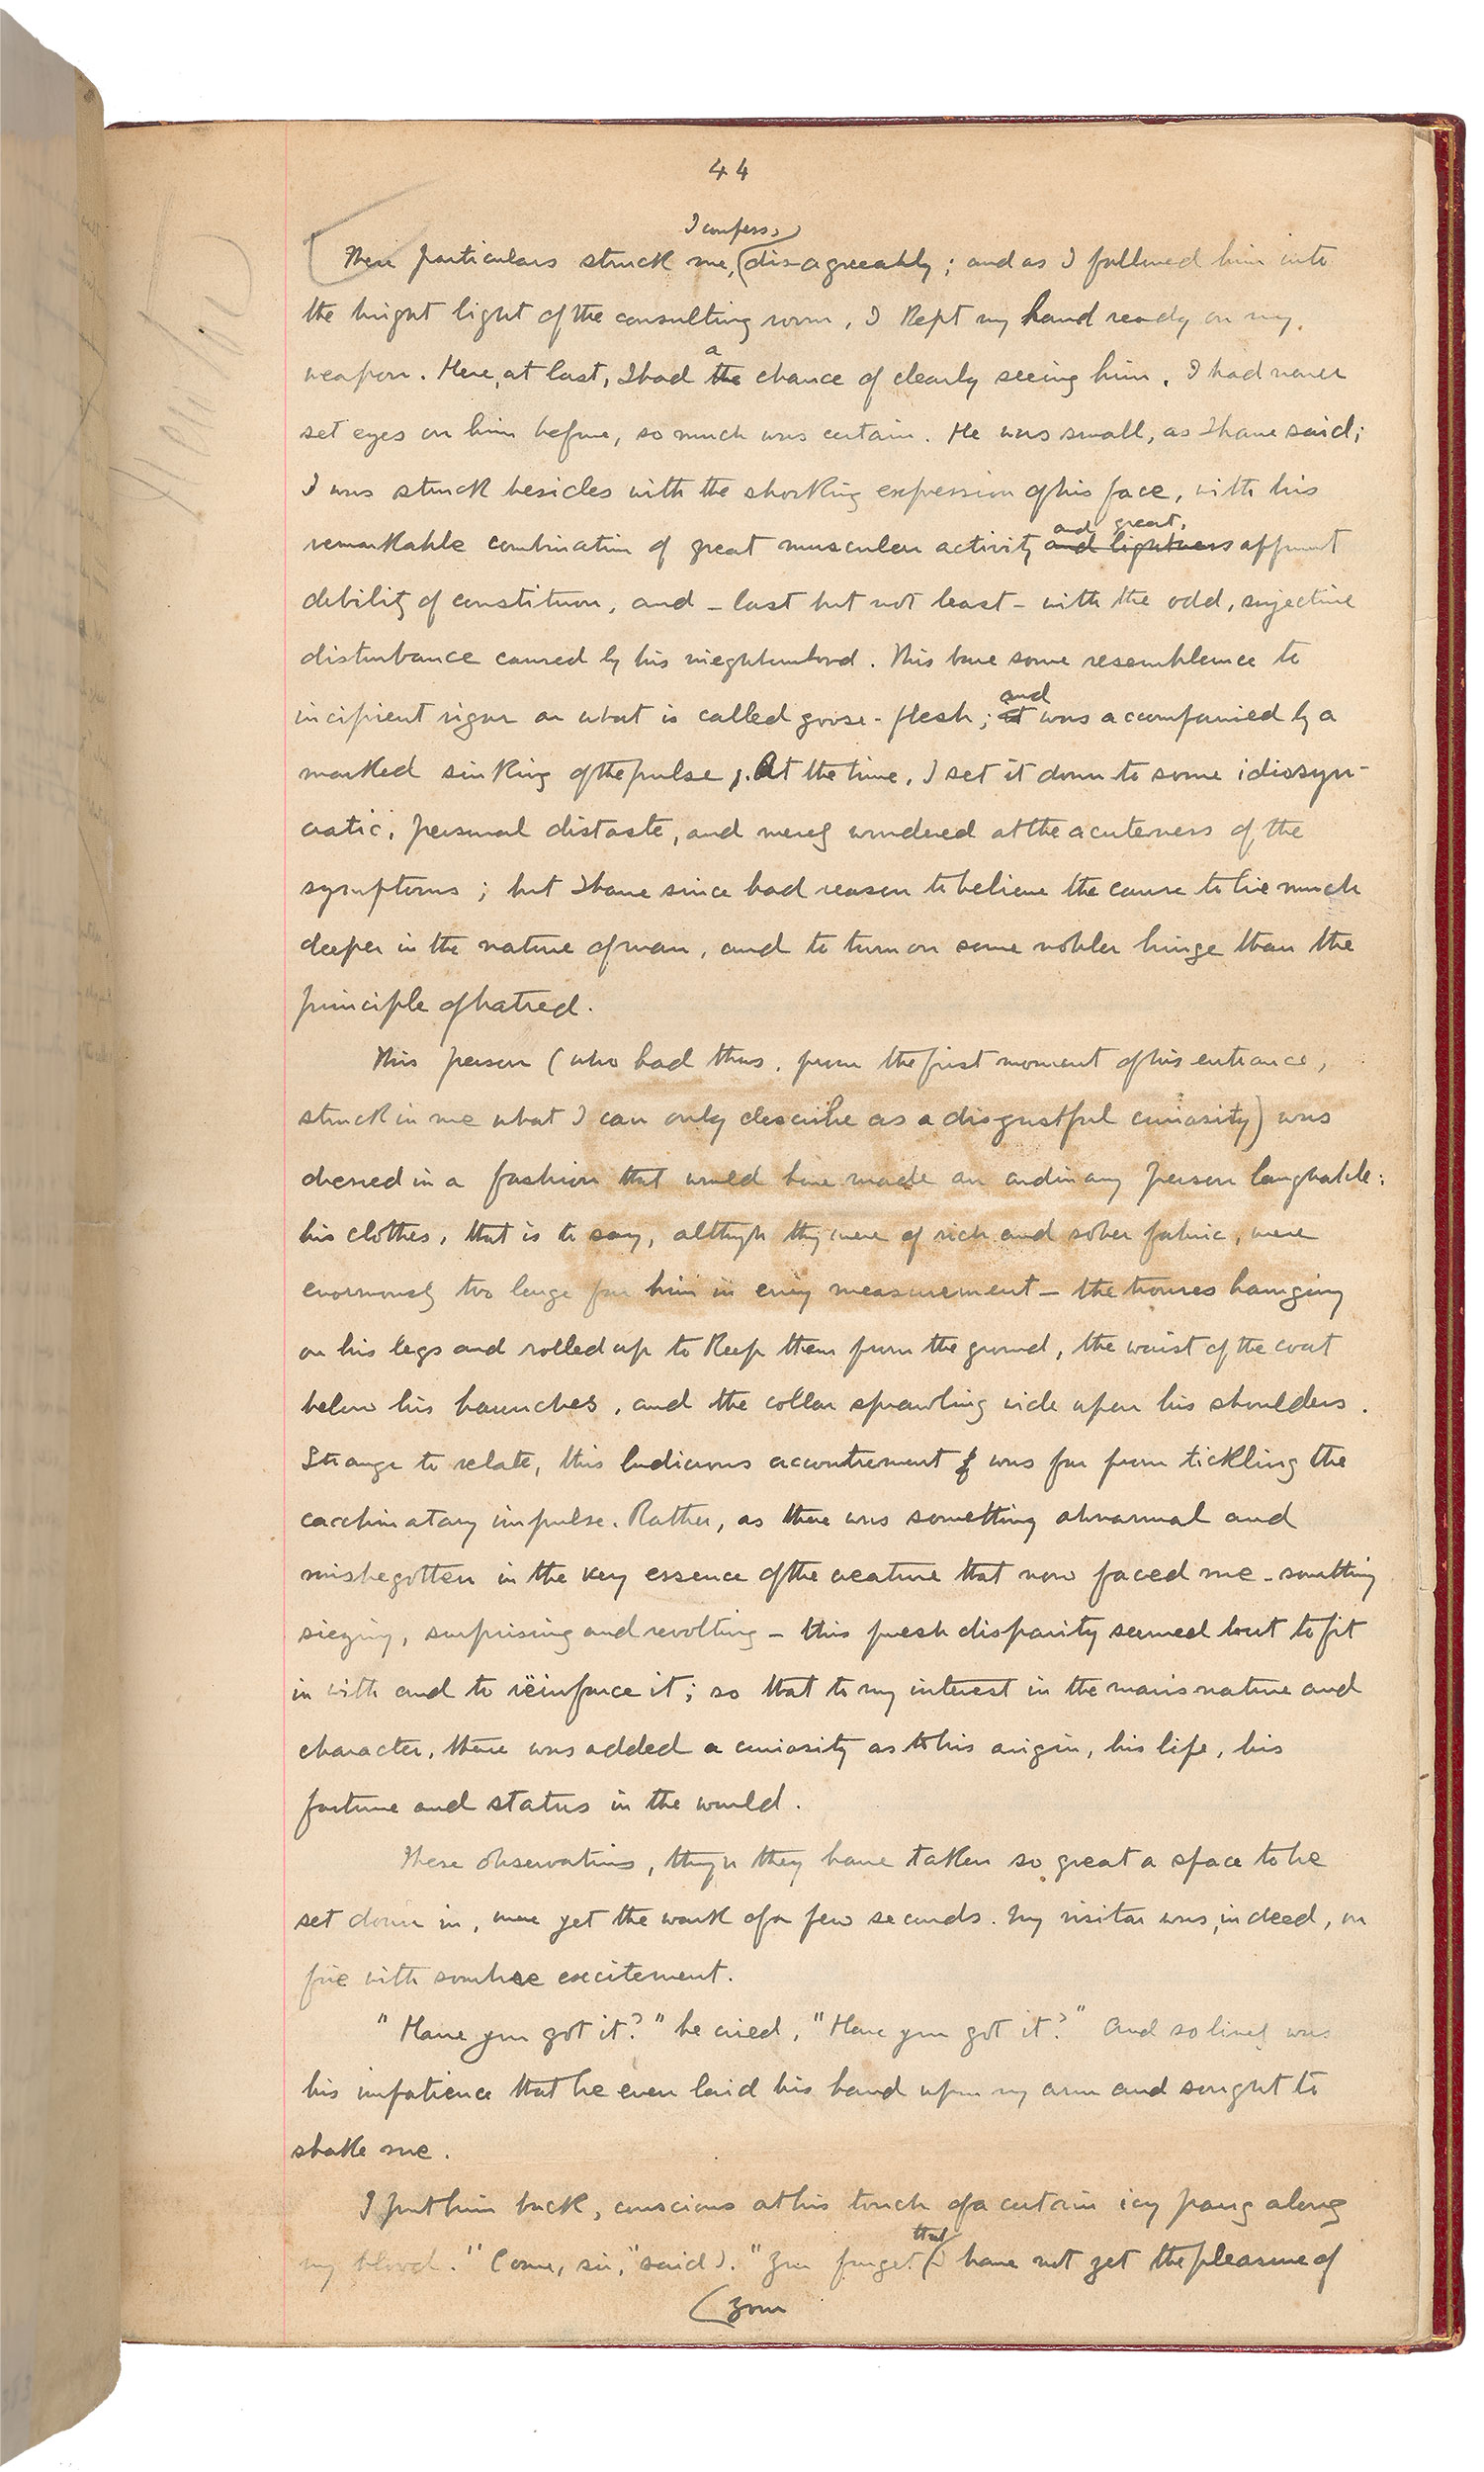 44
I confess,
These particulars struck me, disagreeably; and as I followed him into
the bright light of the consulting room, I kept my hand ready on my
weapon. Here, at last, I had the a chance of clearly seeing him. I had never
set eyes on him before, so much was certain. He was small, as I have said;
I was struck besides with the shocking expression of his face, with his
and great
remarkable combination of great muscular activity and lightness apparent
debility of constitution, and – last but not least – with the odd, subjective
disturbance caused by his nieghbourhood. This bore some resemblance to
and
incipient rigor or what is called goose-flesh; it was accompanied by a
marked sinking of the pulse. At the time, I set it down to some idiosyn-
cratic, personal distaste, and merely wondered at the acuteness of the
symptoms; but I have since had reason to believe the cause to lie much
deeper in the nature of man, and to turn on some nobler hinge than the
principle of hatred.
This person (who had thus, from the first moment of his entrance,
struck in me what I can only describe as a disgustful curiosity) was
dressed in a fashion that would have made an ordinary person laughable:
his clothes, that is to say, although they were of rich and sober fabric, were
enormously too large for him in every measurement – the trousers hanging
on his legs and rolled up to keep them from the ground, the waist of the coat
below his haunches, and the collar sprawling wide upon his shoulders.
Strange to relate, this ludicrous accoutrement was far from tickling the
cacchinatary impulse. Rather, as there was something abnormal and
misbegotten in the very essence of the creature that now faced me – something
siezing, surprising and revolting – this fresh disparity seemed but to fit
in with and to reïnforce it; so that to my interest in the man's nature and
character, there was added a curiosity as to his origin, his life, his
fortune and status in the world.
These observations, though they have taken so great a space to be
set down in, were yet the work of a few seconds. My visitor was, indeed, on
fire with sombre excitement.
"Have you got it?" he cried, "Have you got it?" And so lively was
his impatience that he even laid his hand upon my arm and sought to
shake me.
I put him back, conscious at his touch of a certain icy pang along
that
my blood. "Come, sir," said I. "You forget I have not yet the pleasure of
(your